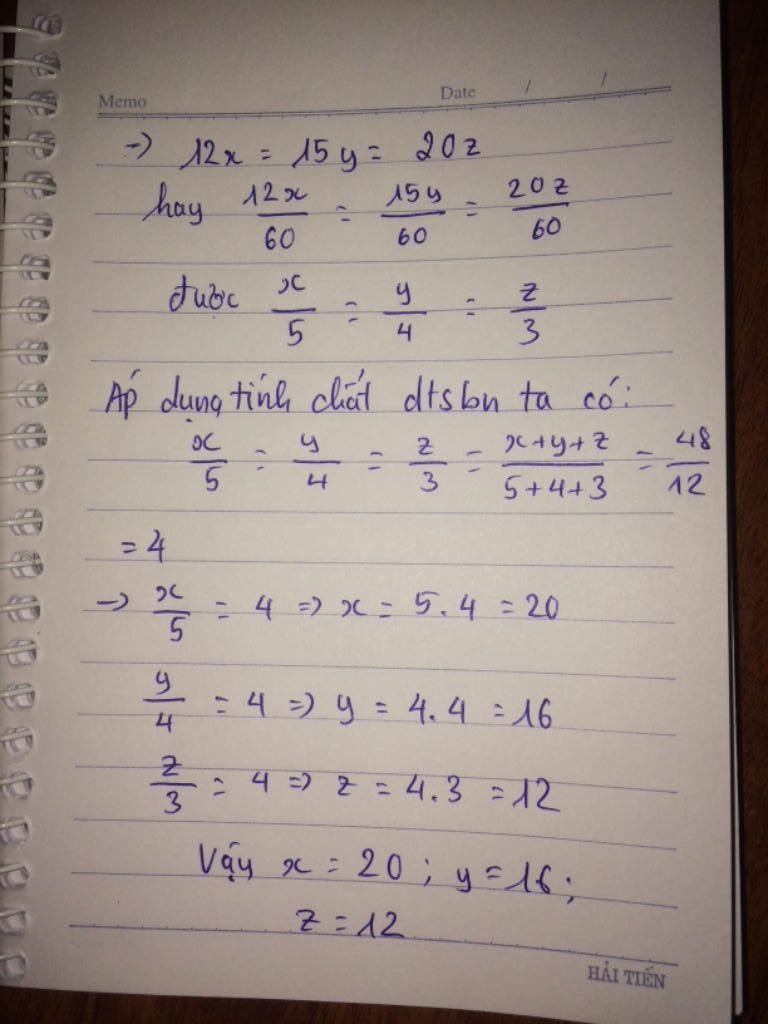 Memo Date / /
→ 12x = 15y = 20z
hay 12x/60 = 15y/60 = 20z/60
được x/5 = y/4 = z/3
Áp dụng tính chất dtsbn ta có:
x/5 = y/4 = z/3 = x+y+z/5+4+3 = 48/12
= 4
→ x/5 = 4 => x = 5.4 = 20
y/4 = 4 => y = 4.4 = 16
z/3 = 4 => z = 4.3 = 12
Vậy x = 20 ; y = 16 ;
z = 12
HẢI TIẾN